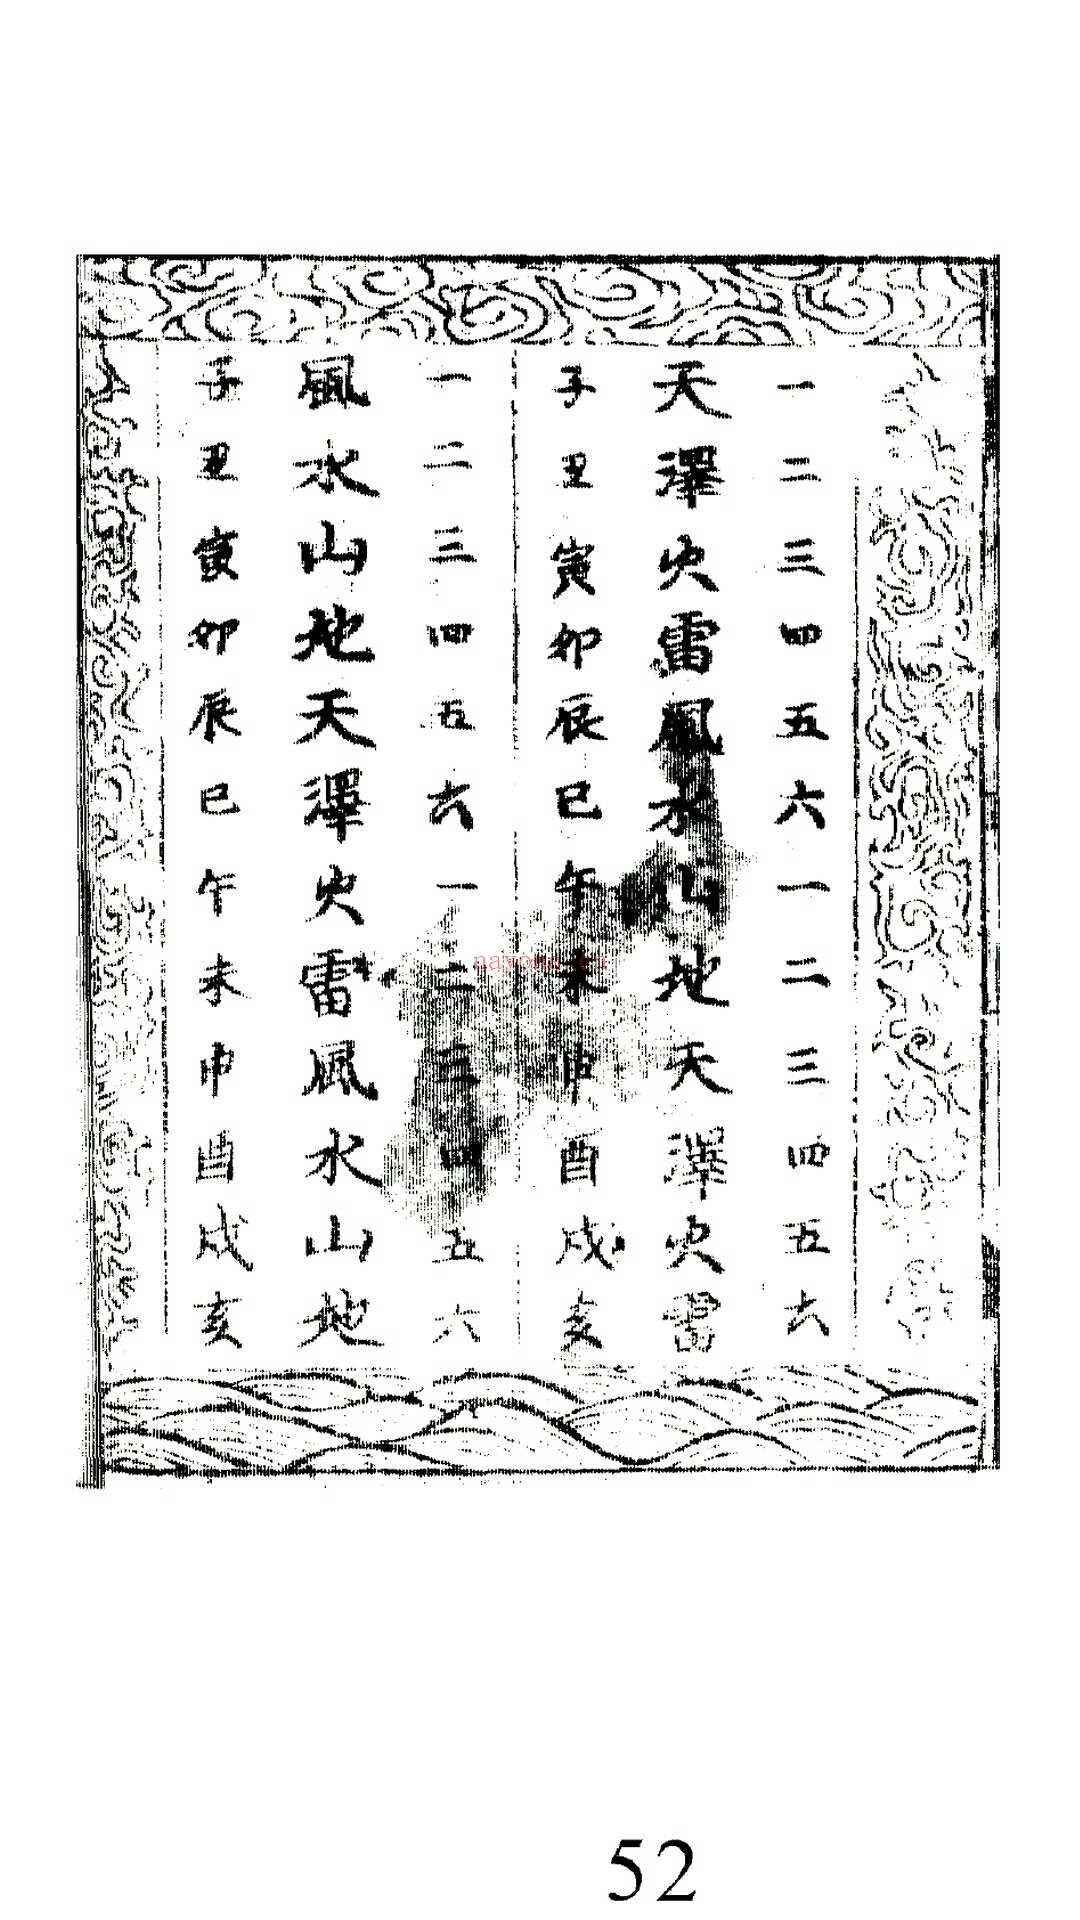 一二三四五六一二三四五六
天澤火雷風水山地天澤火雷
子丑寅卯辰巳午未申酉戌亥
一二三四五六一二三四五六
風水山地天澤火雷風水山地
子丑寅卯辰巳午未申酉戌亥
nayona.cn
52